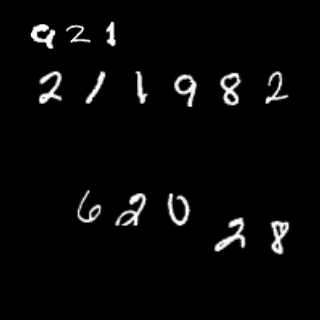 921
211982
620
28